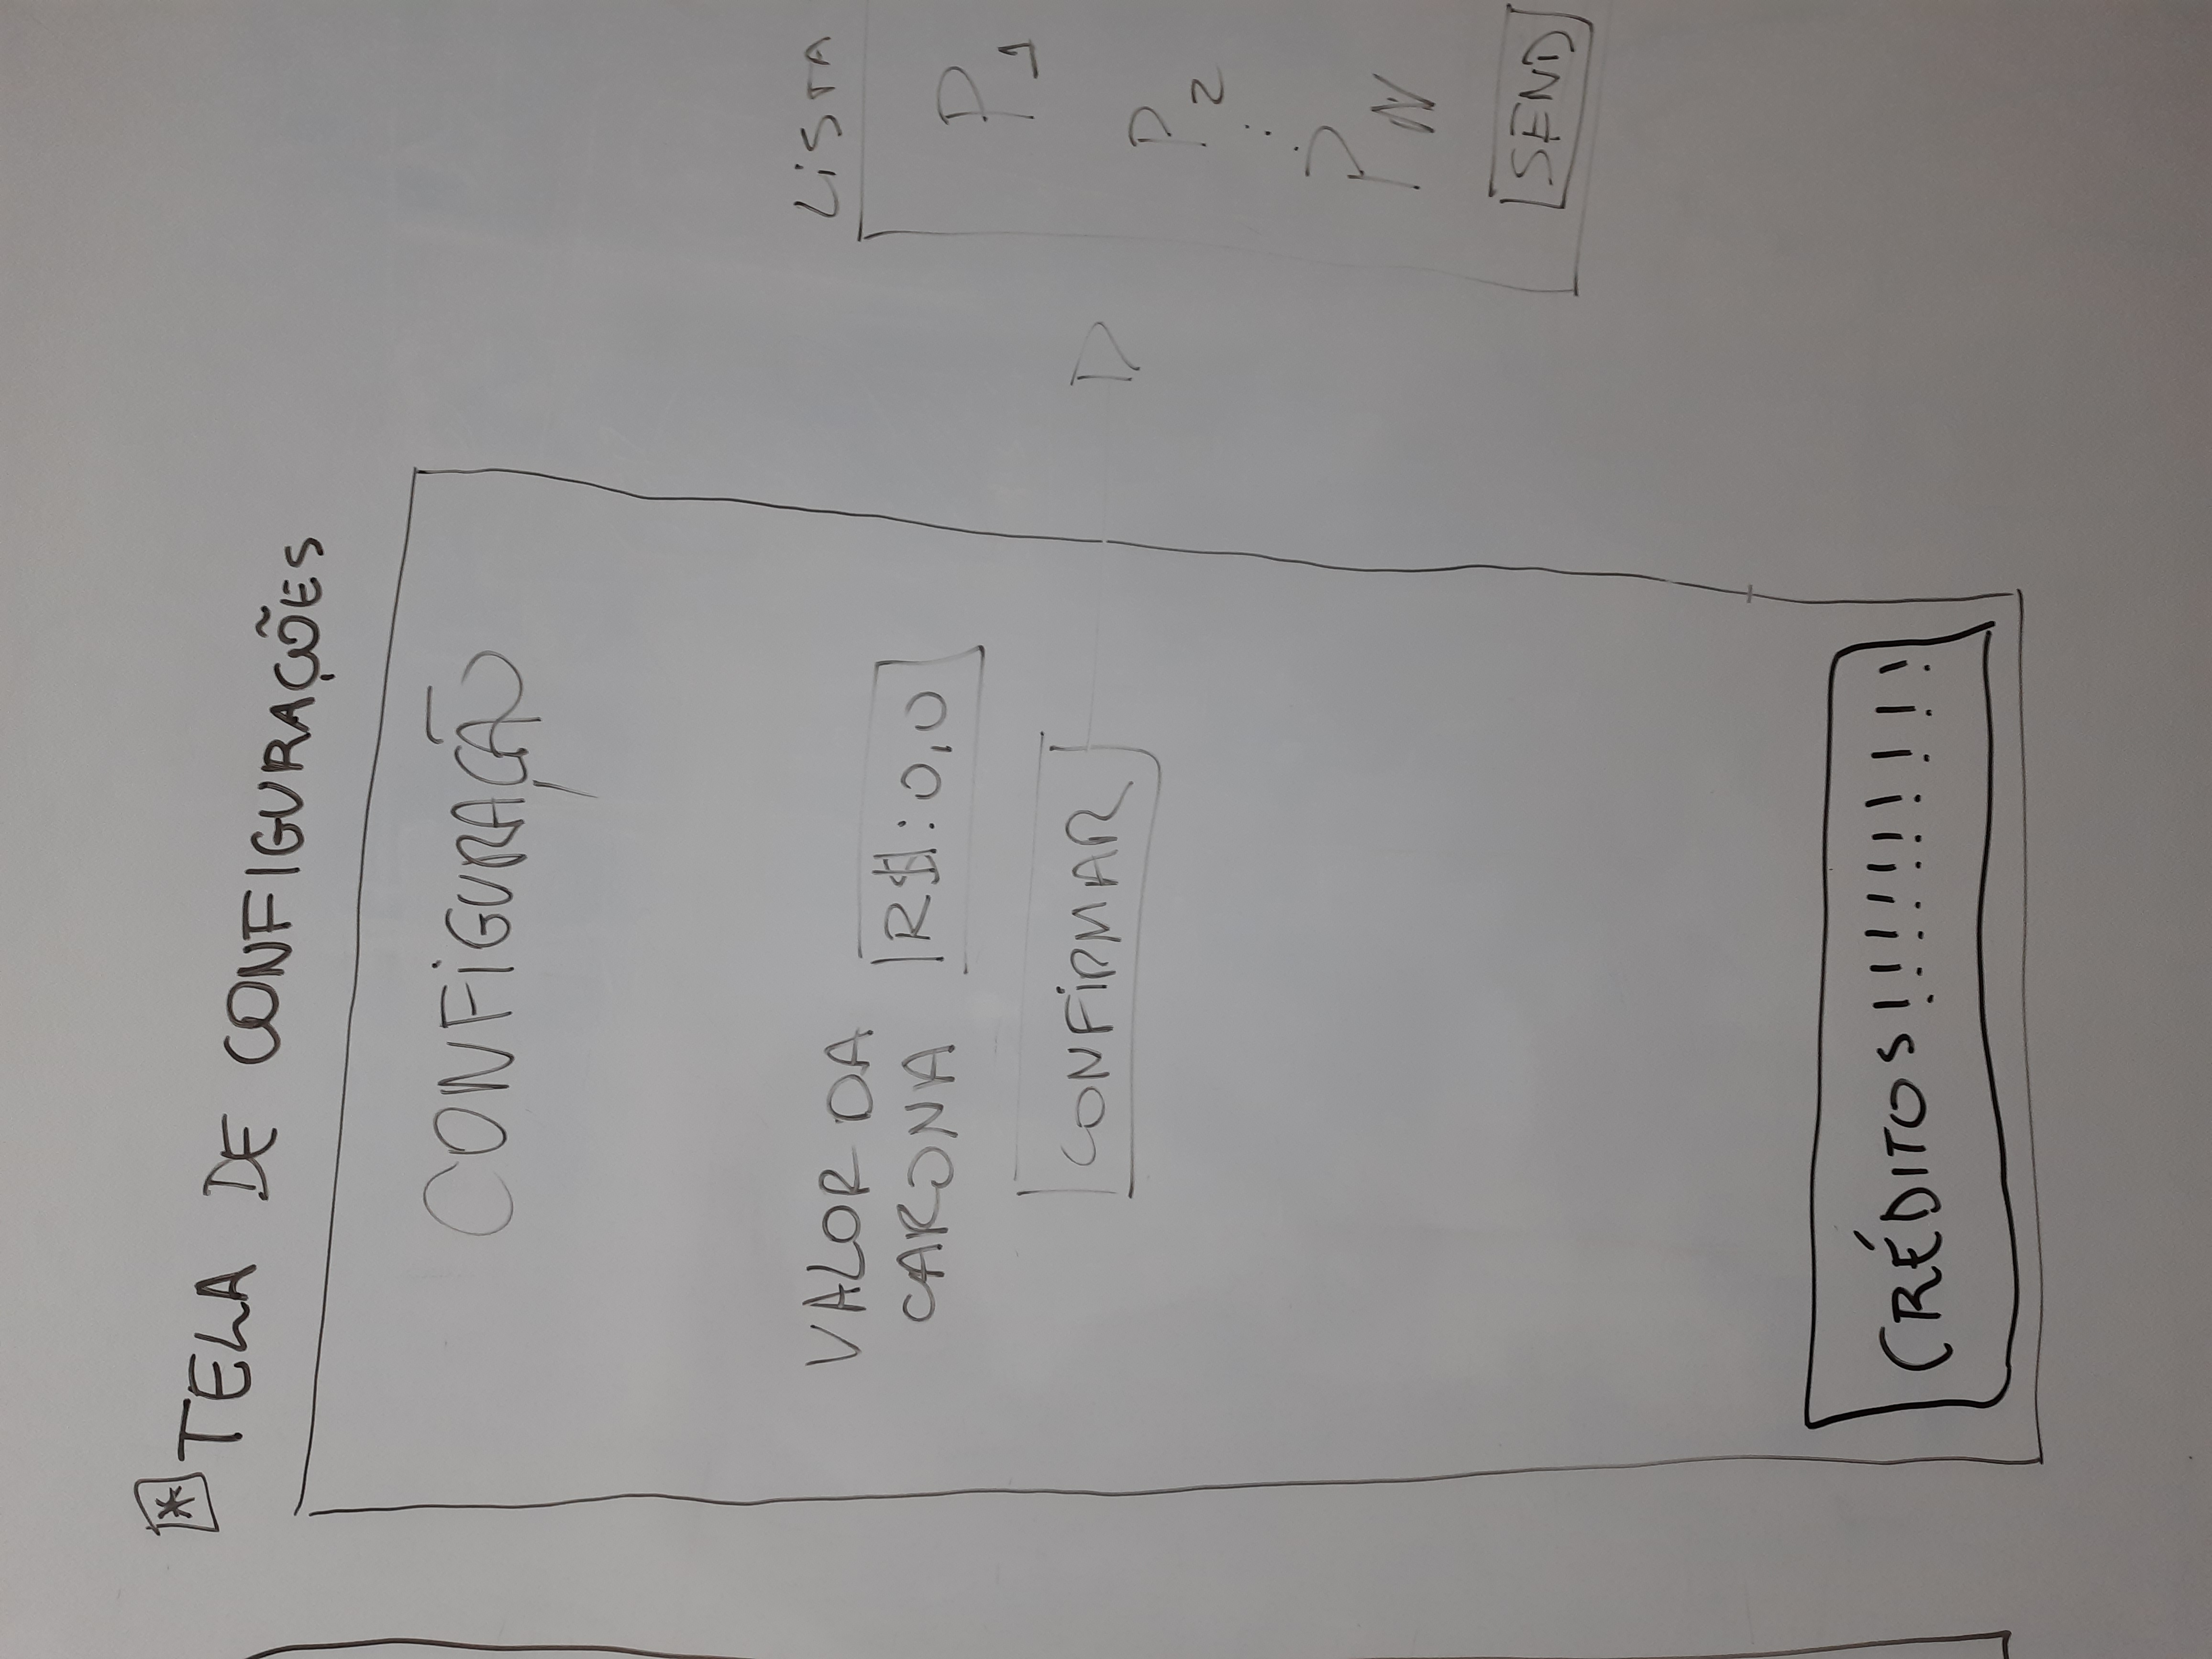 * TELA DE CONFIGURAÇÕES
CONFIGURAÇÃO
VALOR DA
CARONA
R$:0,0
CONFIRMAR
CRÉDITOS!!!!!!!!!!
LISTA
P1
P2
⋮
PN
SEND